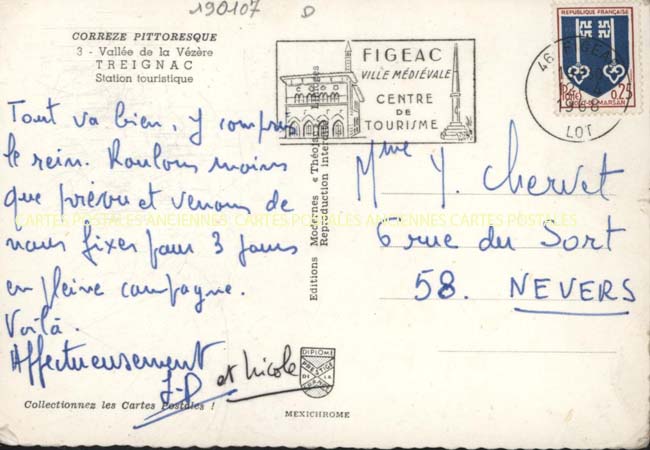 190107 D
CORREZE PITTORESQUE
3 - Vallée de la Vézère
TREIGNAC
Station touristique
Tout va bien, y compris
le rein. Roulons moins
que prévu et venons de
nous fixer pour 3 jours
en pleine campagne.
Voilà.
Affectueusement
J-D et Nicole
Collectionnez les Cartes Postales !
Editions Modernes « Théojac
Reproduction interdite
DIPLOME
PRESTIGE
DE LA
FRANCE
MEXICHROME
FIGEAC
VILLE MÉDIÉVALE
CENTRE
DE
TOURISME
REPUBLIQUE FRANÇAISE
0,25
MONT-DE-MARSAN
46 FIGEAC
1968
LOT
Mme Y. Chervet
6 rue du Sort
58. NEVERS
CARTES POSTALES ANCIENNES CARTES POSTALES ANCIENNES CARTES POSTALES